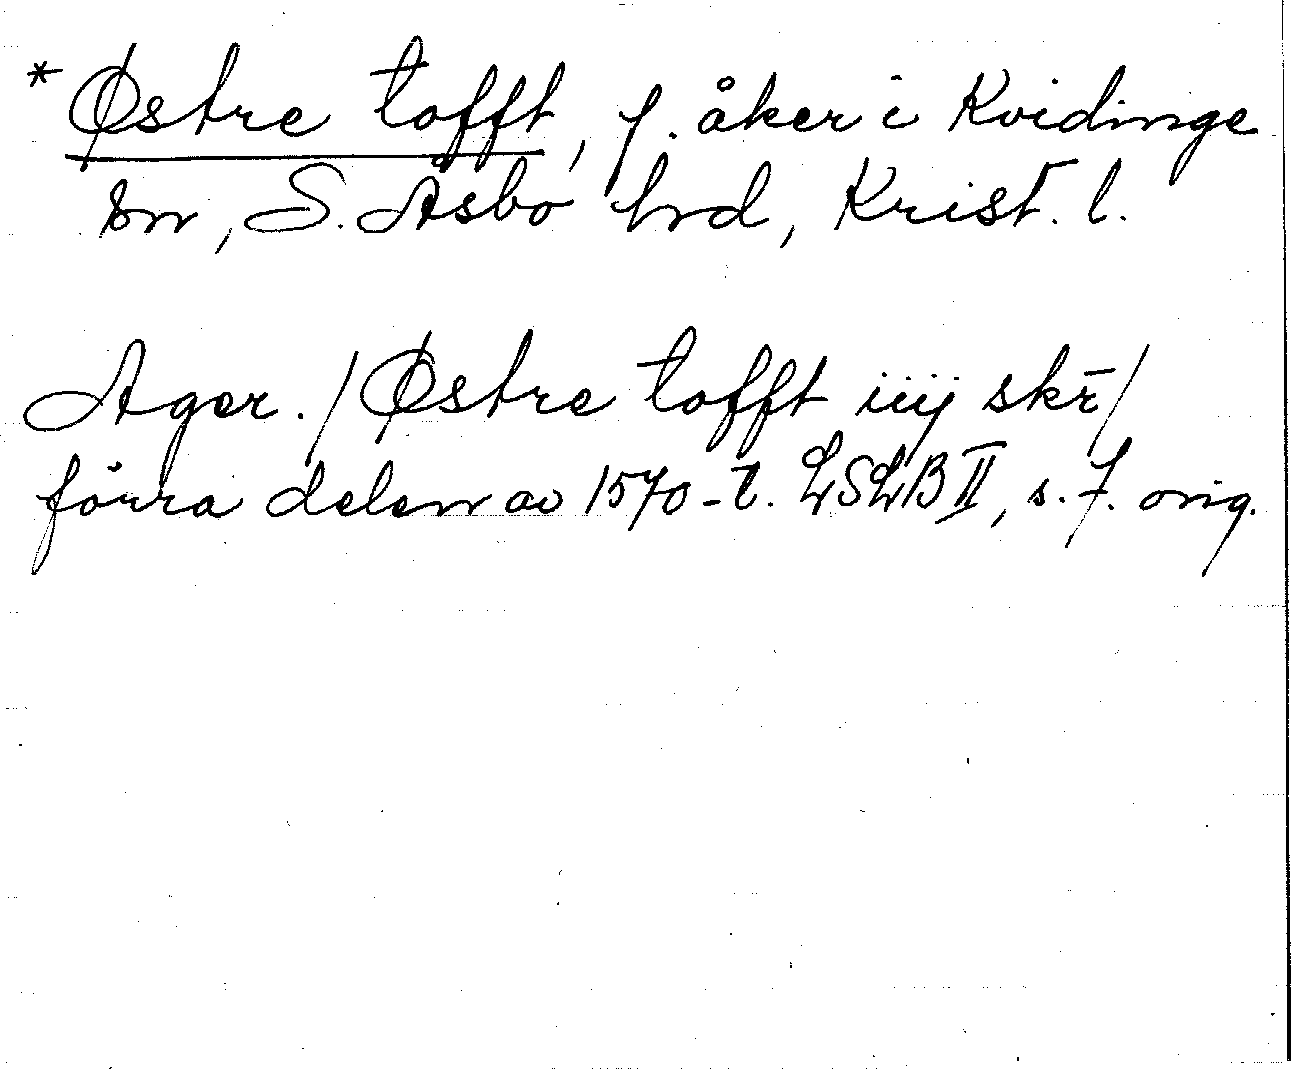 *Østre tofft, f. åker i Kvidinge
sn, S. Åsbo hrd, Krist. l.
Ager. / Østre tofft iiij skr̄ /
förra delen av 1570-t. LSLB II, s. 7. orig.